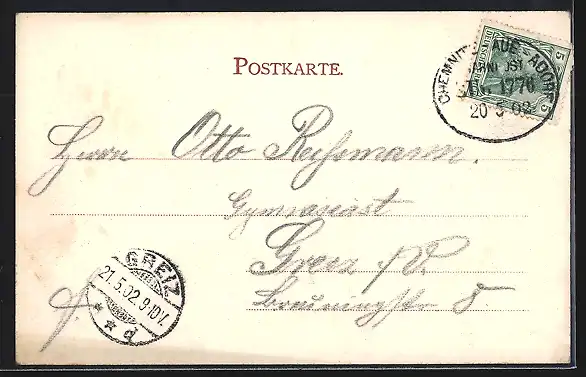 POSTKARTE.
CHEMNITZ-AUE-ADORF
BAHNPOST
ZUG 1776
20 5 02
5
5
Herrn Otto Reißmann.
Gymnasiast
Greiz i/V.
GREIZ
21.5.02.9-10V.
* * d